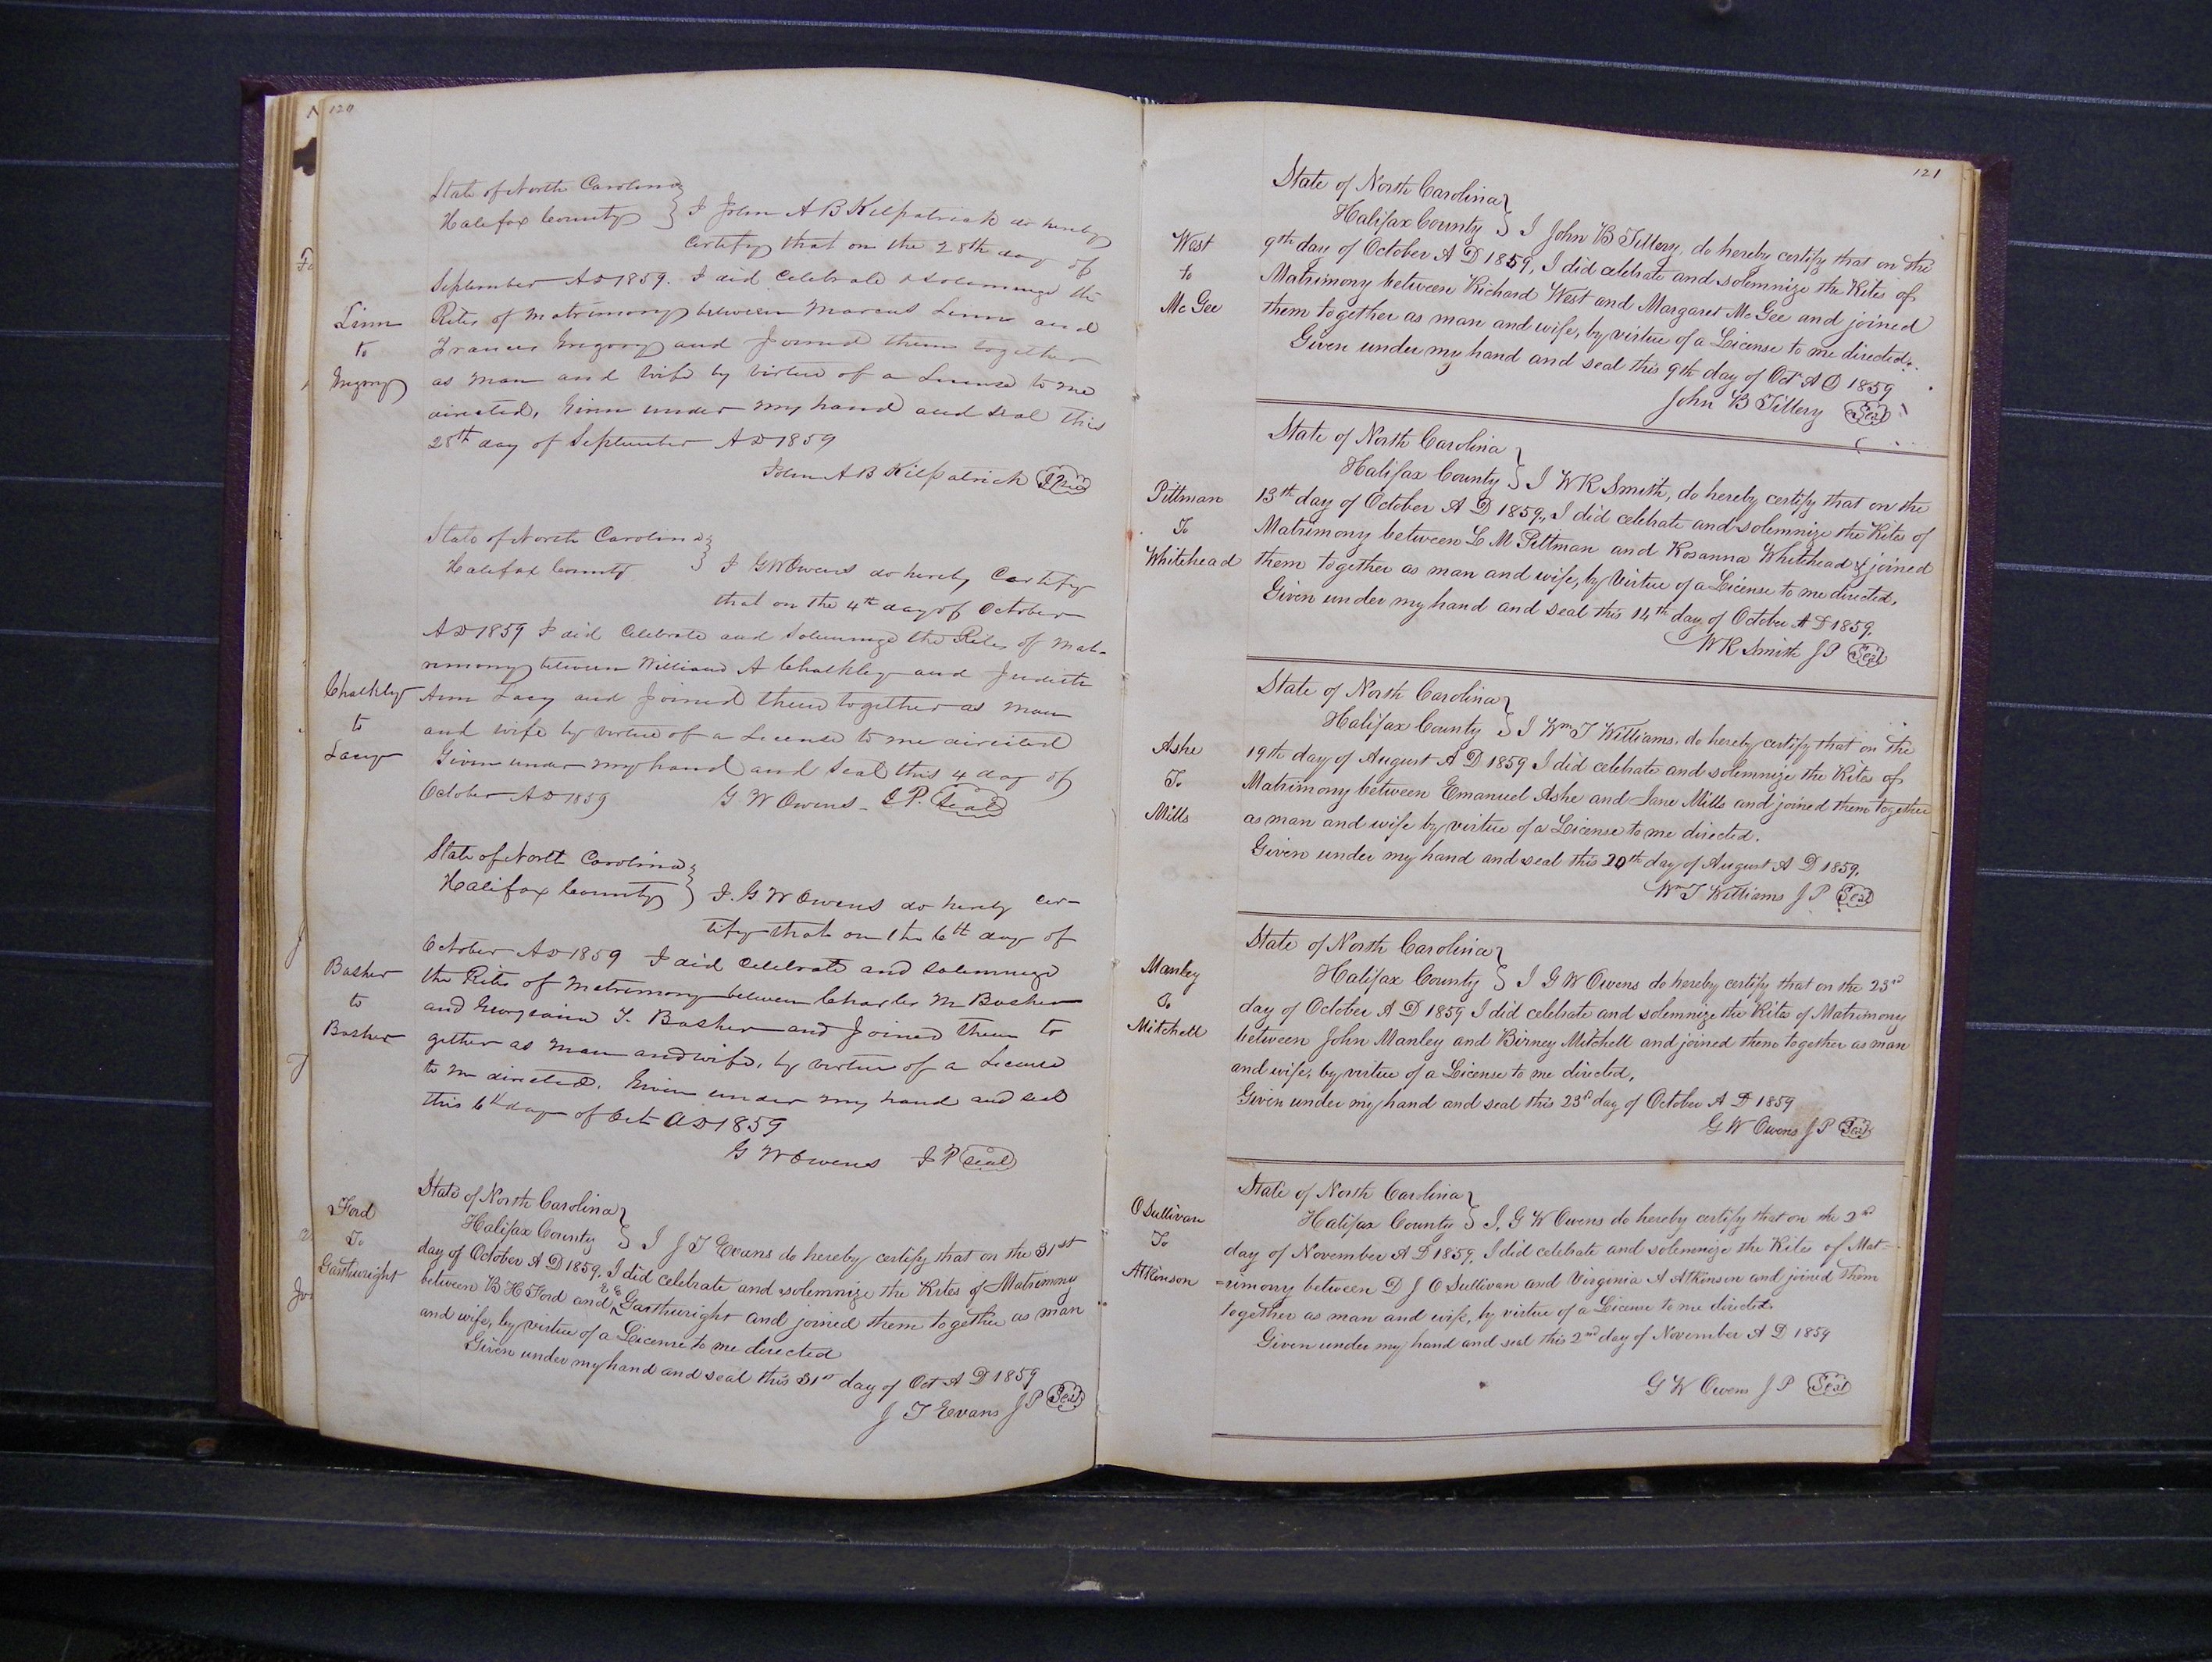 120
State of North Carolina
Halifax County } I John A B Kilpatrick do hereby
certify that on the 28th day of
September AD 1859. I did celebrate & solemnize the
Linn
to
Gregory
Rites of matrimony between Marcus Linn and
Frances Gregory and Joined them together
as man and wife by virtue of a License to me
directed, Given under my hand and seal this
28th day of September AD 1859
John A B Kilpatrick
State of North Carolina
Halifax County } I G W Owens do hereby certify
that on the 4th day of October
AD 1859 I did celebrate and solemnize the Rites of mat-
rimony between William A Chalkley and Judith
Chalkley
to
Lacy
Ann Lacy and Joined them together as man
and wife by virtue of a License to me directed
Given under my hand and seal this 4 day of
October AD 1859 G W Owens - J P. Seal
State of North Carolina
Halifax County } I. G. W Owens do hereby cer-
tify that on the 6th day of
October AD 1859 I did celebrate and solemnize
Basher
to
Basher
the Rites of matrimony between Charles M Basher
and Georgiana T. Basher and Joined them to
gether as man and wife, by virtue of a License
to me directed. Given under my hand and seal
this 6th day of Oct AD 1859
G W Owens J P Seal
State of North Carolina
Halifax County } I J T Evans do hereby certify that on the 31st
Ford
To
Garthwright
day of October A D 1859, I did celebrate and solemnize the Rites of Matrimony
between B H Ford and E E Garthwright and joined them together as man
and wife, by virtue of a License to me directed
Given under my hand and seal this 31st day of Oct A D 1859
J T Evans J P Seal
121
State of North Carolina
Halifax County } I John B Tillery, do hereby certify that on the
West
to
McGee
9th day of October A D 1859, I did celebrate and solemnize the Rites of
Matrimony between Richard West and Margaret McGee and joined
them together as man and wife, by virtue of a License to me directed.
Given under my hand and seal this 9th day of Oct A D 1859
John B Tillery Seal
State of North Carolina
Halifax County } I W R Smith, do hereby certify that on the
Pittman
To
Whitehead
13th day of October A D 1859, I did celebrate and solemnize the Rites of
Matrimony between L M Pittman and Rosanna Whitehead & joined
them together as man and wife, by Virtue of a License to me directed,
Given under my hand and seal this 14th day of October A D 1859,
W R Smith J P Seal
State of North Carolina
Halifax County } I Wm T Williams, do hereby certify that on the
Ashe
To
Mills
19th day of August A D 1859 I did celebrate and solemnize the Rites of
Matrimony between Emanuel Ashe and Jane Mills and joined them together
as man and wife by virtue of a License to me directed.
Given under my hand and seal this 20th day of August A D 1859,
Wm T Williams J P Seal
State of North Carolina
Halifax County } I G W Owens do hereby certify that on the 23rd
Manley
To
Mitchell
day of October A D 1859 I did celebrate and solemnize the Rites of Matrimony
between John Manley and Birney Mitchell and joined them together as man
and wife, by virtue of a License to me directed,
Given under my hand and seal this 23rd day of October A D 1859
G W Owens J P Seal
State of North Carolina
Halifax County } I, G W Owens do hereby certify that on the 2nd
O Sullivan
To
Atkinson
day of November A D 1859, I did celebrate and solemnize the Rites of Mat-
=rimony between D J O Sullivan and Virginia A Atkinson and joined them
together as man and wife, by virtue of a License to me directed.
Given under my hand and seal this 2nd day of November A D 1859
G W Owens J P Seal